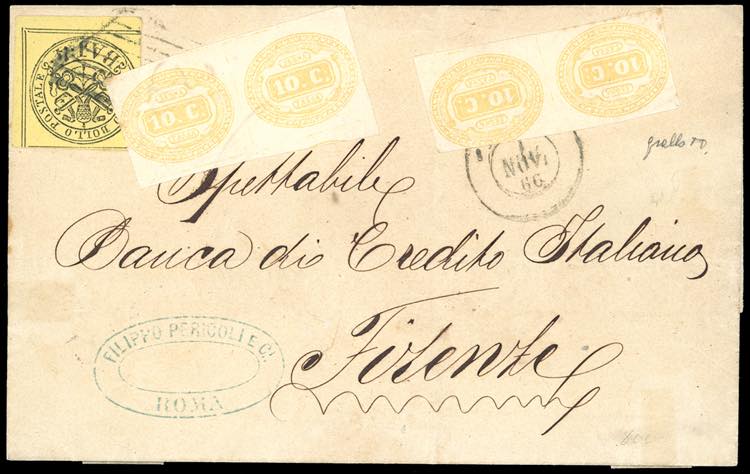 BOLLO POSTALE
10. C.
10. C.
10. C.
10. C.
1
NOV.
66
Spettabile
Banca di Credito Italiano
Firenze
FILIPPO PERICOLI E C.
ROMA